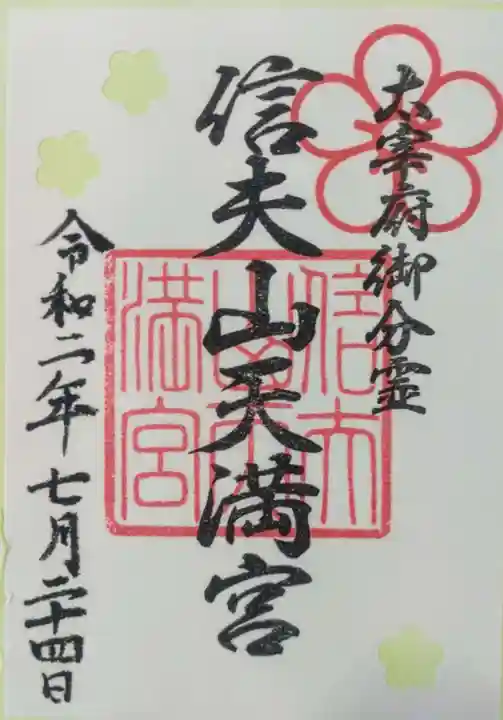 大宰府御分霊
信夫山天満宮
信夫
山天
満宮
令和二年七月二十四日